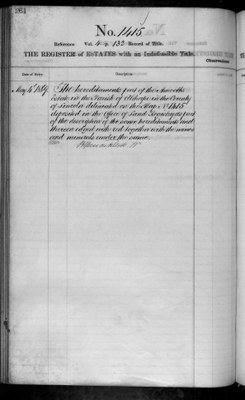 No. 1415.
Reference Vol. 4 p. 132 Record of Title.
THE REGISTER of ESTATES with an Indefeasible Title.
Date of Entry.
Description
Observations
May 4th 1869.
The hereditaments part of the
Estate in the Parish of in the County
of Lincoln delineated on the Map No 1415
deposited in the Office of Land Registry as part
of the description of the same hereditaments and
thereon edged with red together with the mines
and minerals under the same.